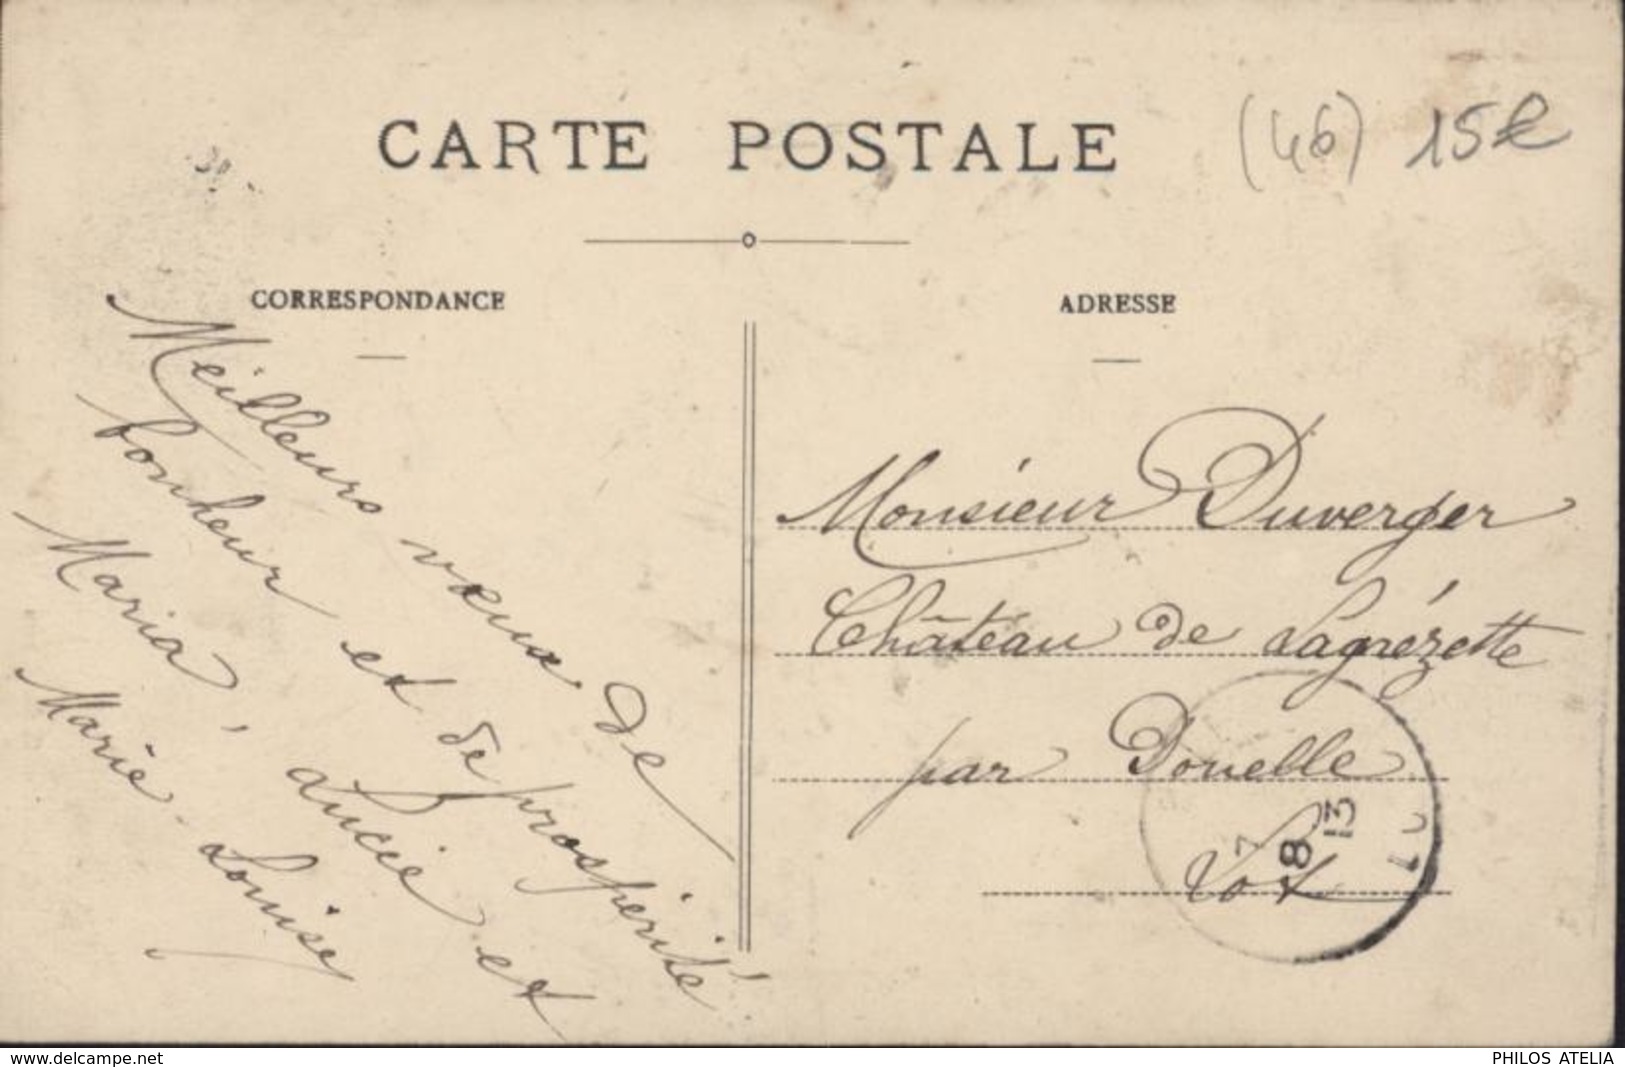 CARTE POSTALE
(46) 15€
CORRESPONDANCE
Meilleurs vœux de
bonheur et de prospérité!
Maria, Lucie et
Marie-Louise
ADRESSE
Monsieur Duverger
Château de Lagrézette
par Douelle
Lot
7
8
13
LOT
www.delcampe.net
PHILOS ATELIA